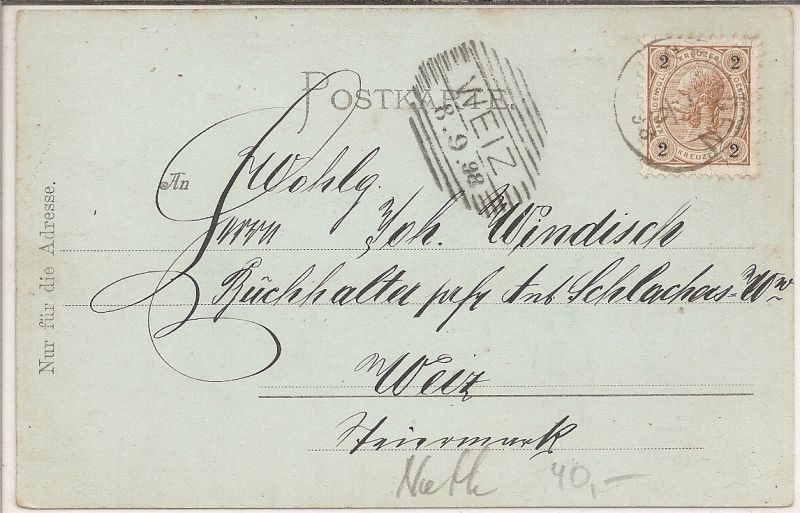 POSTKARTE.
WEIZ
8.9.98
2 KREUZER 2
2 KREUZER 2
An
Wohlg.
Herrn Joh. Windisch
Buchhalter Ant Schlachers Ww
Weiz
Steiermark
Nur für die Adresse.
40,-